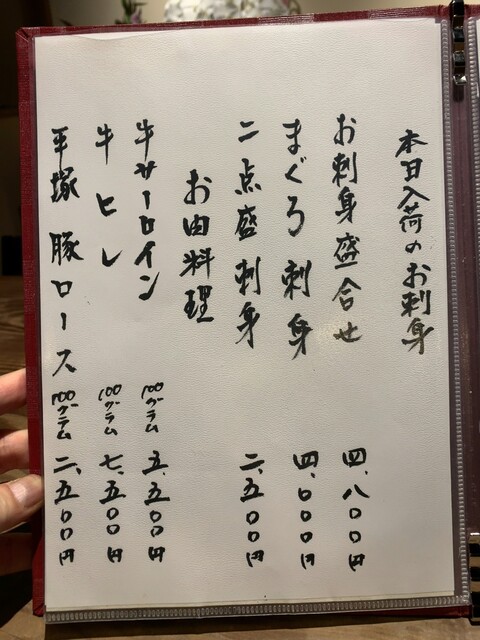 本日入荷のお刺身
お刺身盛合せ 四、八００円
まぐろ刺身 四、０００円
二点盛刺身 二、五００円
お肉料理
牛サーロイン 100グラム 五、五００円
牛ヒレ 100グラム 七、五００円
平塚 豚ロース 100グラム 二、五００円